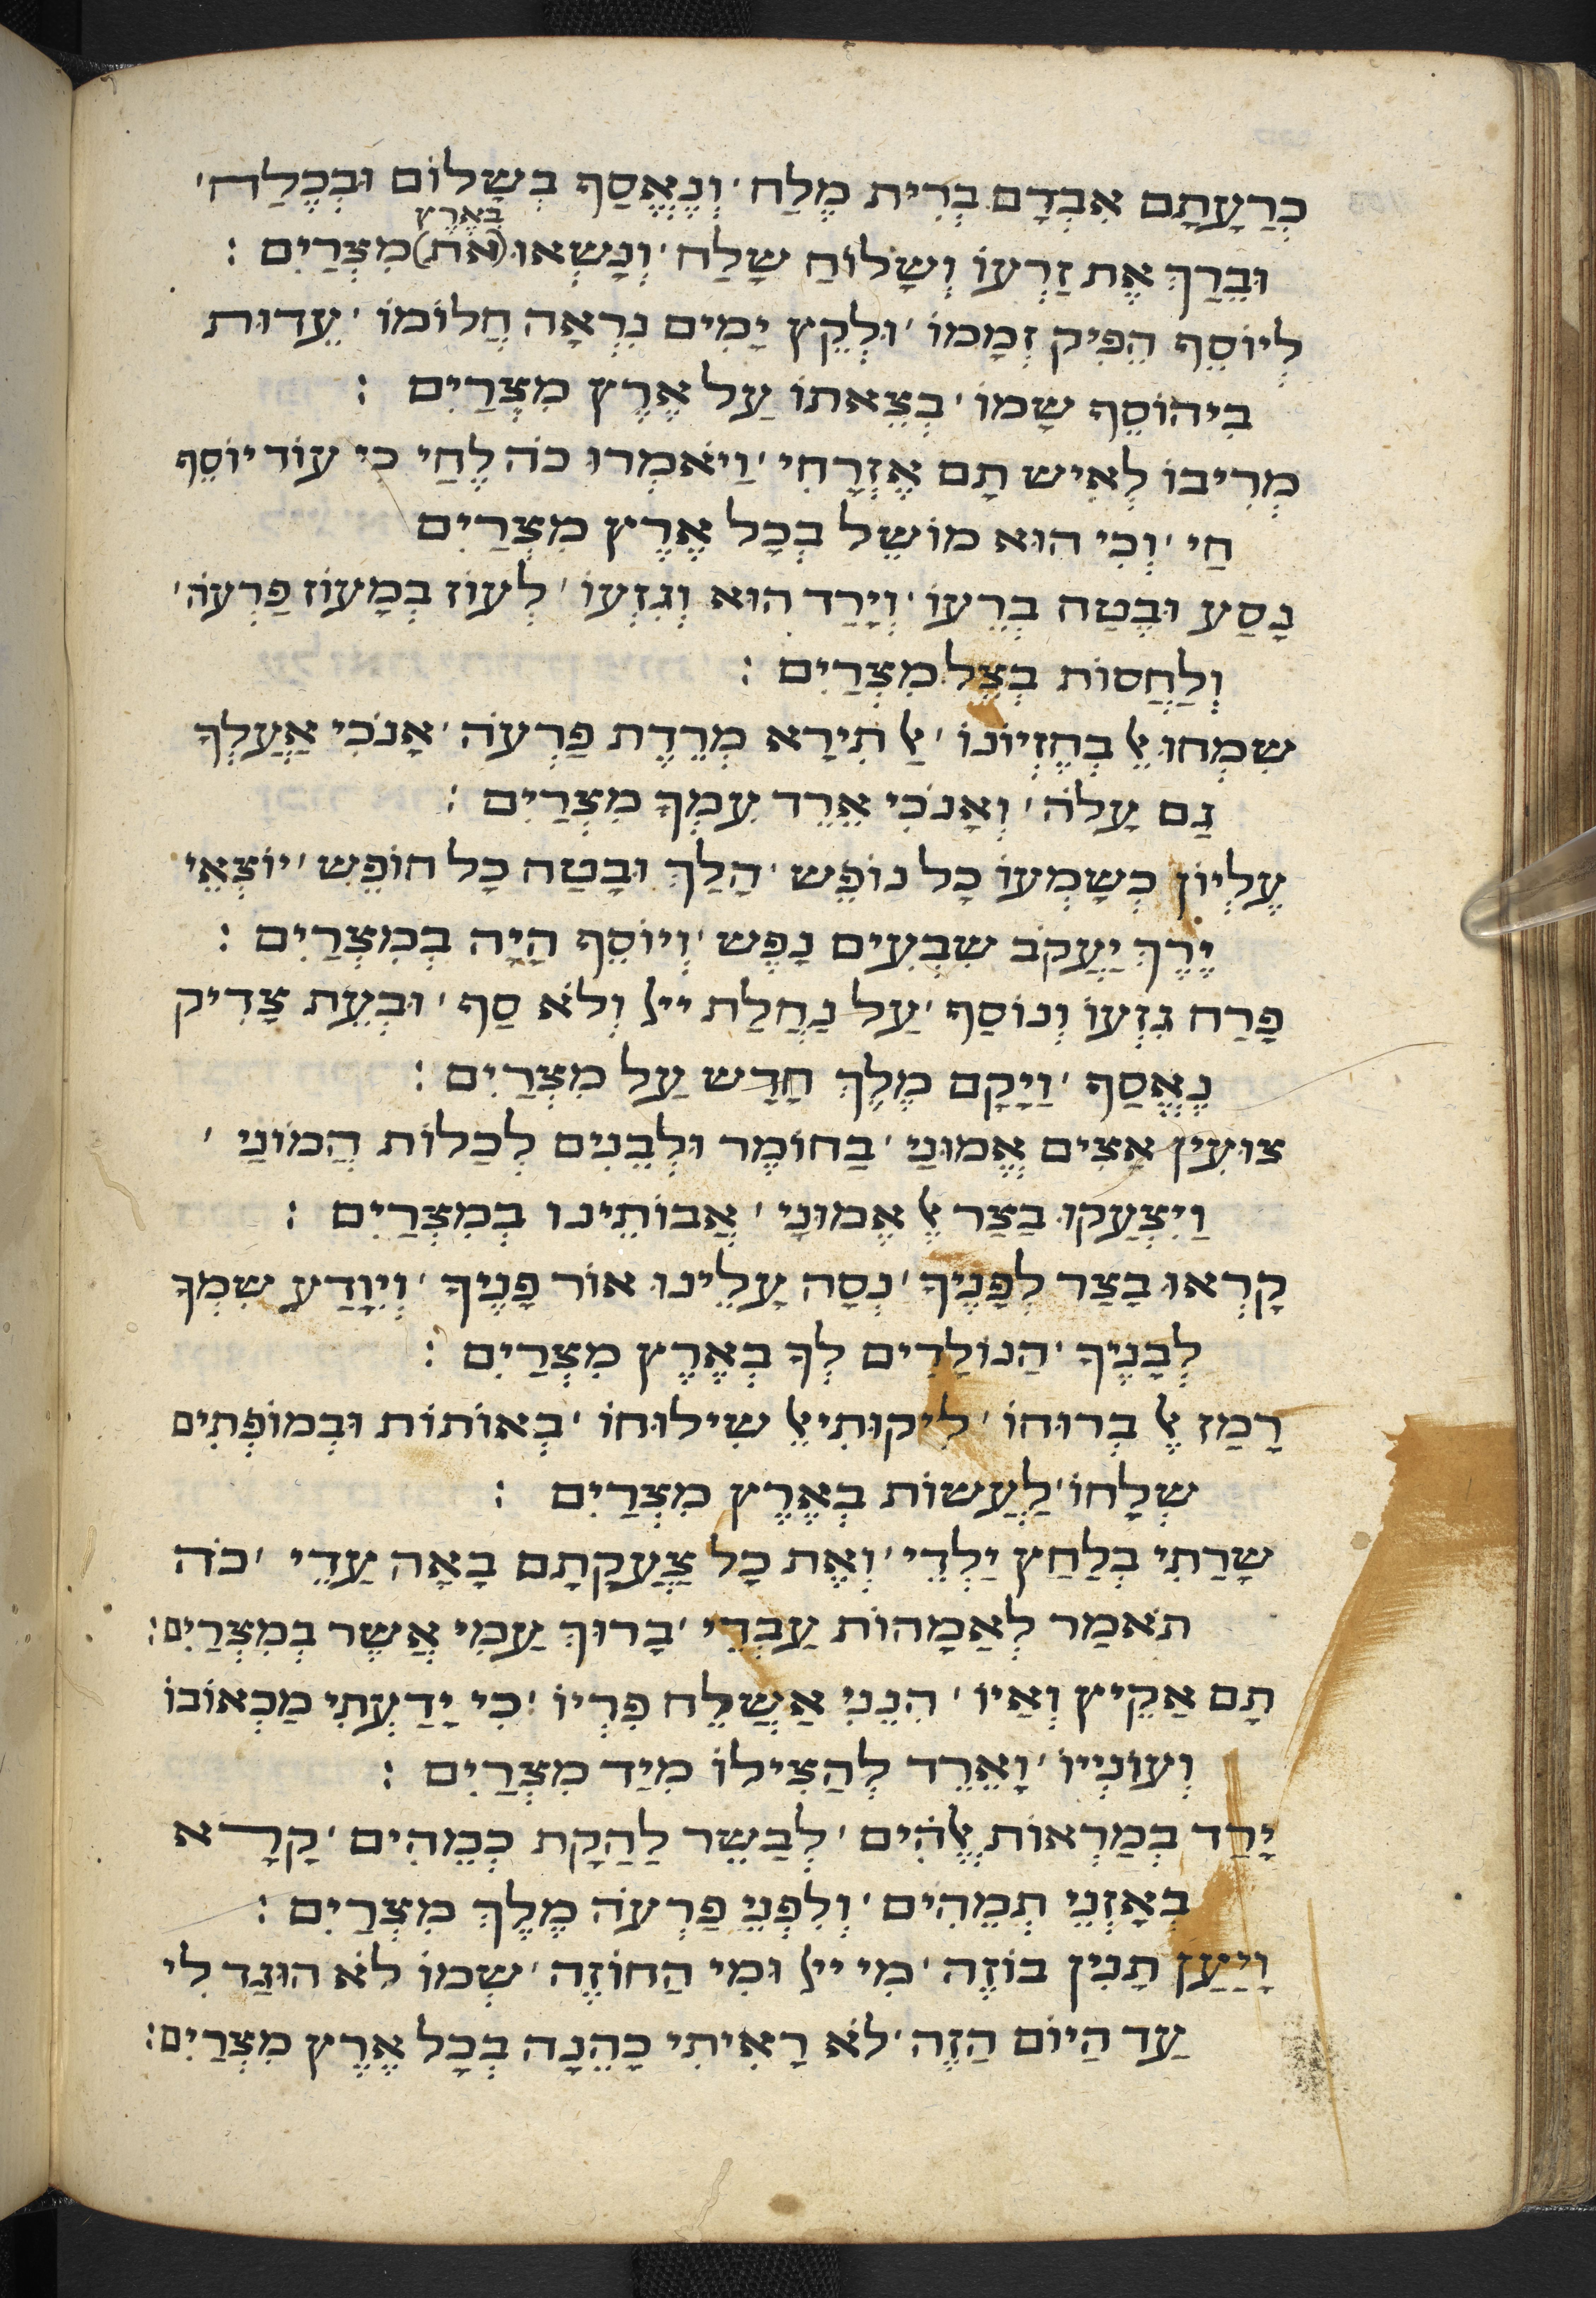 כְרַעָתָם אִבְדָם בְרִית מֶלַח׳ וְנֶאֱסַף בְשָלוֹם וּבְכֶלַח׳
בְאֶרֶץ
וּבֵרַךְ אֶת זַרְעוֹ וְשָלוֹחַ שָלַח׳ וְנָשְאוּ (אֵת) מִצְרַיִם :
לְיוֹסֵף הֵפִיק זְמָמוֹ׳ וּלְקֵץ יָמִים נִרְאָה חֲלוֹמוֹ׳ עֵדוּת
בִיהוֹסֵף שָמוֹ׳ בְצֵאתוֹ עַל אֶרֶץ מִצְרַיִם :
מְרִיבוֹ לְאִיש תָם אֶזְרָחִי׳ וַיֹאמְרוּ כֹה לֶחַי כִי עוֹד יוֹסֵף
חַי׳ וְכִי הוּא מוֹשֵל בְכָל אֶרֶץ מִצְרַיִם
נָסַע וּבֶטַח בְרֵעוֹ׳ וְיָרַד הוּא וְגִזְעוֹ׳ לְעוֹז בְמָעוֹז פַרְעֹה׳
וְלַחֲסוֹת בְצֵל מִצְרַיִם :
שִמְחוּ אֵל בְחֶזְיוֹנוֹ׳ אַל תִירָא מְרֶדֶת פַרְעֹה׳ אָנֹכִי אַעַלְךָ
גַם עָלֹה׳ וְאָנֹכִי אֵרֵד עִמְךָ מִצְרַיִם :
עֶלְיוֹן כְשָמְעוֹ כָל נוֹפֵש׳ הָלַךְ וּבָטַח כָל חוֹפֵש׳ יוֹצְאֵי
יֶרֶךְ יַעֲקֹב שִבְעִים נָפֶש׳ וְיוֹסֵף הָיָה בְמִצְרַיִם :
פָרַח גִזְעוֹ וְנוֹסַף׳ עַל נַחֲלַת ייל וְלֹא סַף׳ וּבְעֵת צָדִיק
נֶאֱסַף׳ וַיָקָם מֶלֶךְ חָדָש עַל מִצְרַיִם :
צוּעִין אָצִים אֱמוּנַי׳ בַחוֹמֶר וּלְבֵנִים לְכַלוֹת הֲמוֹנַי׳
וַיִצְעֲקוּ בַצַר אֶל אֱמוּנָי׳ אֲבוֹתֵינוּ בְמִצְרַיִם :
קָרְאוּ בָצַר לְפָנֶיךָ׳ נְסָה עָלֵינוּ אוֹר פָנֶיךָ׳ וְיִוָדַע שִמְךָ
לְבָנֶיךָ׳ הַנוֹלָדִים לְךָ בְאֶרֶץ מִצְרַיִם :
רָמַז אֶל בְרוּחוֹ׳ לִיקוּתִיאֵל שִילוּחוֹ׳ בְאוֹתוֹת וּבְמוֹפְתִים
שְלָחוֹ׳ לַעֲשוֹת בְאֶרֶץ מִצְרַיִם :
שָרַתִי בְלַחַץ יַלְדֵי׳ וְאֶת כָל צַעֲקָתָם בָאָה עָדַי׳ כֹה
תֹאמַר לְאַמָהוֹת עַבְדִי׳ בָרוּךְ עַמִי אֲשֶר בְמִצְרַיִם :
תָם אַקֵיץ וְאַיוֹ׳ הִנֵנִי אֲשַלֵח פִרְיוֹ׳ כִי יָדַעְתִי מַכְאוֹבוֹ
וְעוֹנְיוֹ׳ וָאֵרֵד לְהַצִילוֹ מִיַד מִצְרַיִם :
יָרַד בְמַרְאוֹת אֱלֹהִים׳ לְבַשֵר לַהֲקַת כְמֵהִים׳ קָרָא
בְאָזְנֵי תְמֵהִים׳ וְלִפְנֵי פַרְעֹה מֶלֶךְ מִצְרַיִם :
וַיַעַן תָנִין בוֹזֶה׳ מִי ייל וּמִי הַחוֹזֶה׳ שְמוֹ לֹא הוּגַד לִי
עַד הַיוֹם הַזֶה׳ לֹא רָאִיתִי כָהֵנָה בְכָל אֶרֶץ מִצְרַיִם :